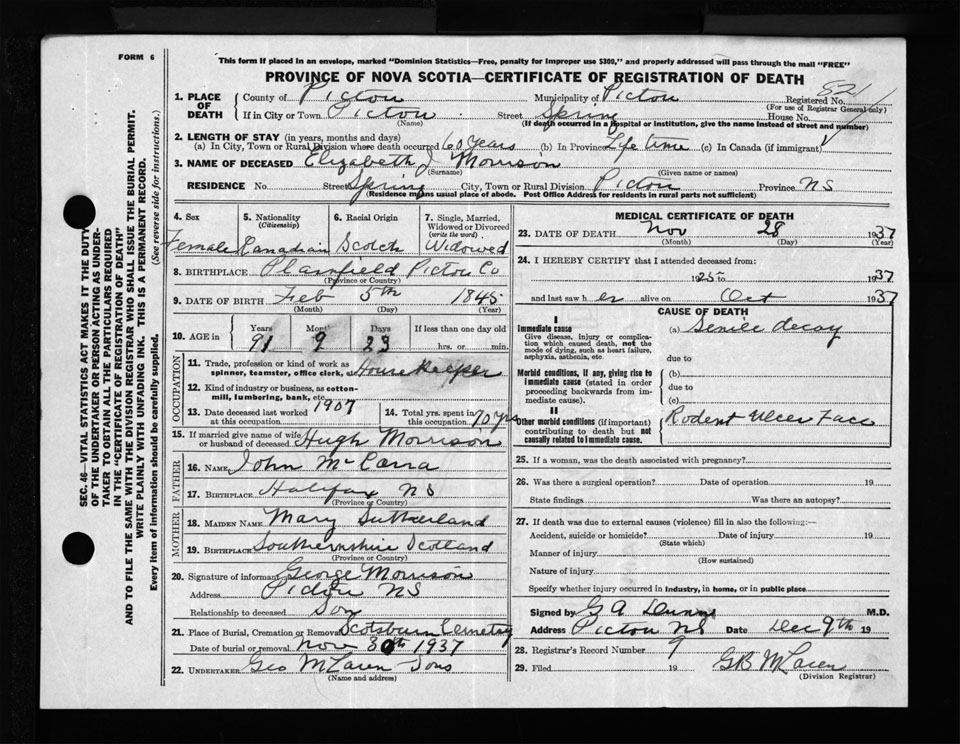 FORM 6
This form if placed in an envelope, marked "Dominion Statistics—Free, penalty for improper use $300," and properly addressed will pass through the mail "FREE"
PROVINCE OF NOVA SCOTIA—CERTIFICATE OF REGISTRATION OF DEATH
1. PLACE OF DEATH
County of Pictou Municipality of Pictou Registered No. 821
(For use of Registrar General only)
If in City or Town Pictou Street Spring House No.
(Name) (If death occurred in a Hospital or Institution, give the name instead of street and number)
2. LENGTH OF STAY (in years, months and days)
(a) In City, Town or Rural Division where death occurred 60 Years (b) In Province Life time (c) In Canada (if immigrant)
3. NAME OF DECEASED Elizabeth J Morrison
(Surname) (Given name or names)
RESIDENCE No. Street Spring City, Town or Rural Division Pictou Province NS
(Residence means usual place of abode. Post Office Address for residents in rural parts not sufficient)
4. Sex 5. Nationality (Citizenship) 6. Racial Origin 7. Single, Married, Widowed or Divorced (write the word)
Female Canadian Scotch Widowed
8. BIRTHPLACE Plainfield Pictou Co
(Province or Country)
9. DATE OF BIRTH Feb 5th 1845
(Month) (Day) (Year)
10. AGE in Years Months Days If less than one day old
91 9 23 hrs. or min.
OCCUPATION
11. Trade, profession or kind of work as spinner, teamster, office clerk, etc. Housekeeper
12. Kind of industry or business, as cotton-mill, lumbering, bank, etc.
13. Date deceased last worked at this occupation 1907 14. Total yrs. spent in this occupation 70 yrs
15. If married give name of wife or husband of deceased Hugh Morrison
FATHER
16. NAME John McCarra
17. BIRTHPLACE Halifax NS
(Province or Country)
MOTHER
18. MAIDEN NAME Mary Sutherland
19. BIRTHPLACE Scotland
(Province or Country)
20. Signature of informant George Morrison
Address Pictou NS
Relationship to deceased Son
21. Place of Burial, Cremation or Removal Scotsburn Cemetery
Date of burial or removal Nov 30th 1937
22. UNDERTAKER Geo McLaren Sons
(Name and address)
MEDICAL CERTIFICATE OF DEATH
23. DATE OF DEATH Nov 28 1937
(Month) (Day) (Year)
24. I HEREBY CERTIFY that I attended deceased from:
1925 to 1937
and last saw her alive on Oct 1937
CAUSE OF DEATH
I
Immediate cause (a) Senile decay
Give disease, injury or complication which caused death, not the mode of dying, such as heart failure, asphyxia, asthenia, etc.
due to
Morbid conditions, if any, giving rise to immediate cause (stated in order proceeding backwards from immediate cause).
(b)
due to
(c)
II
Other morbid conditions (if important) contributing to death but not causally related to immediate cause.
Rodent Ulcer Face
25. If a woman, was the death associated with pregnancy?
26. Was there a surgical operation? Date of operation 19
State findings Was there an autopsy?
27. If death was due to external causes (violence) fill in also the following:—
Accident, suicide or homicide? Date of injury 19
(State which)
Manner of injury
(How sustained)
Nature of injury
Specify whether injury occurred in industry, in home, or in public place
Signed by G A Dunn M.D.
Address Pictou NS Date Dec 9th 19
28. Registrar's Record Number 9
29. Filed 19 GB McLaren
(Division Registrar)
SEC. 46—VITAL STATISTICS ACT MAKES IT THE DUTY OF THE UNDERTAKER OR PERSON ACTING AS UNDERTAKER TO OBTAIN ALL THE PARTICULARS REQUIRED IN THE "CERTIFICATE OF REGISTRATION OF DEATH" AND TO FILE THE SAME WITH THE DIVISION REGISTRAR WHO SHALL ISSUE THE BURIAL PERMIT.
WRITE PLAINLY WITH UNFADING INK. THIS IS A PERMANENT RECORD.
Every item of information should be carefully supplied. (See reverse side for instructions.)